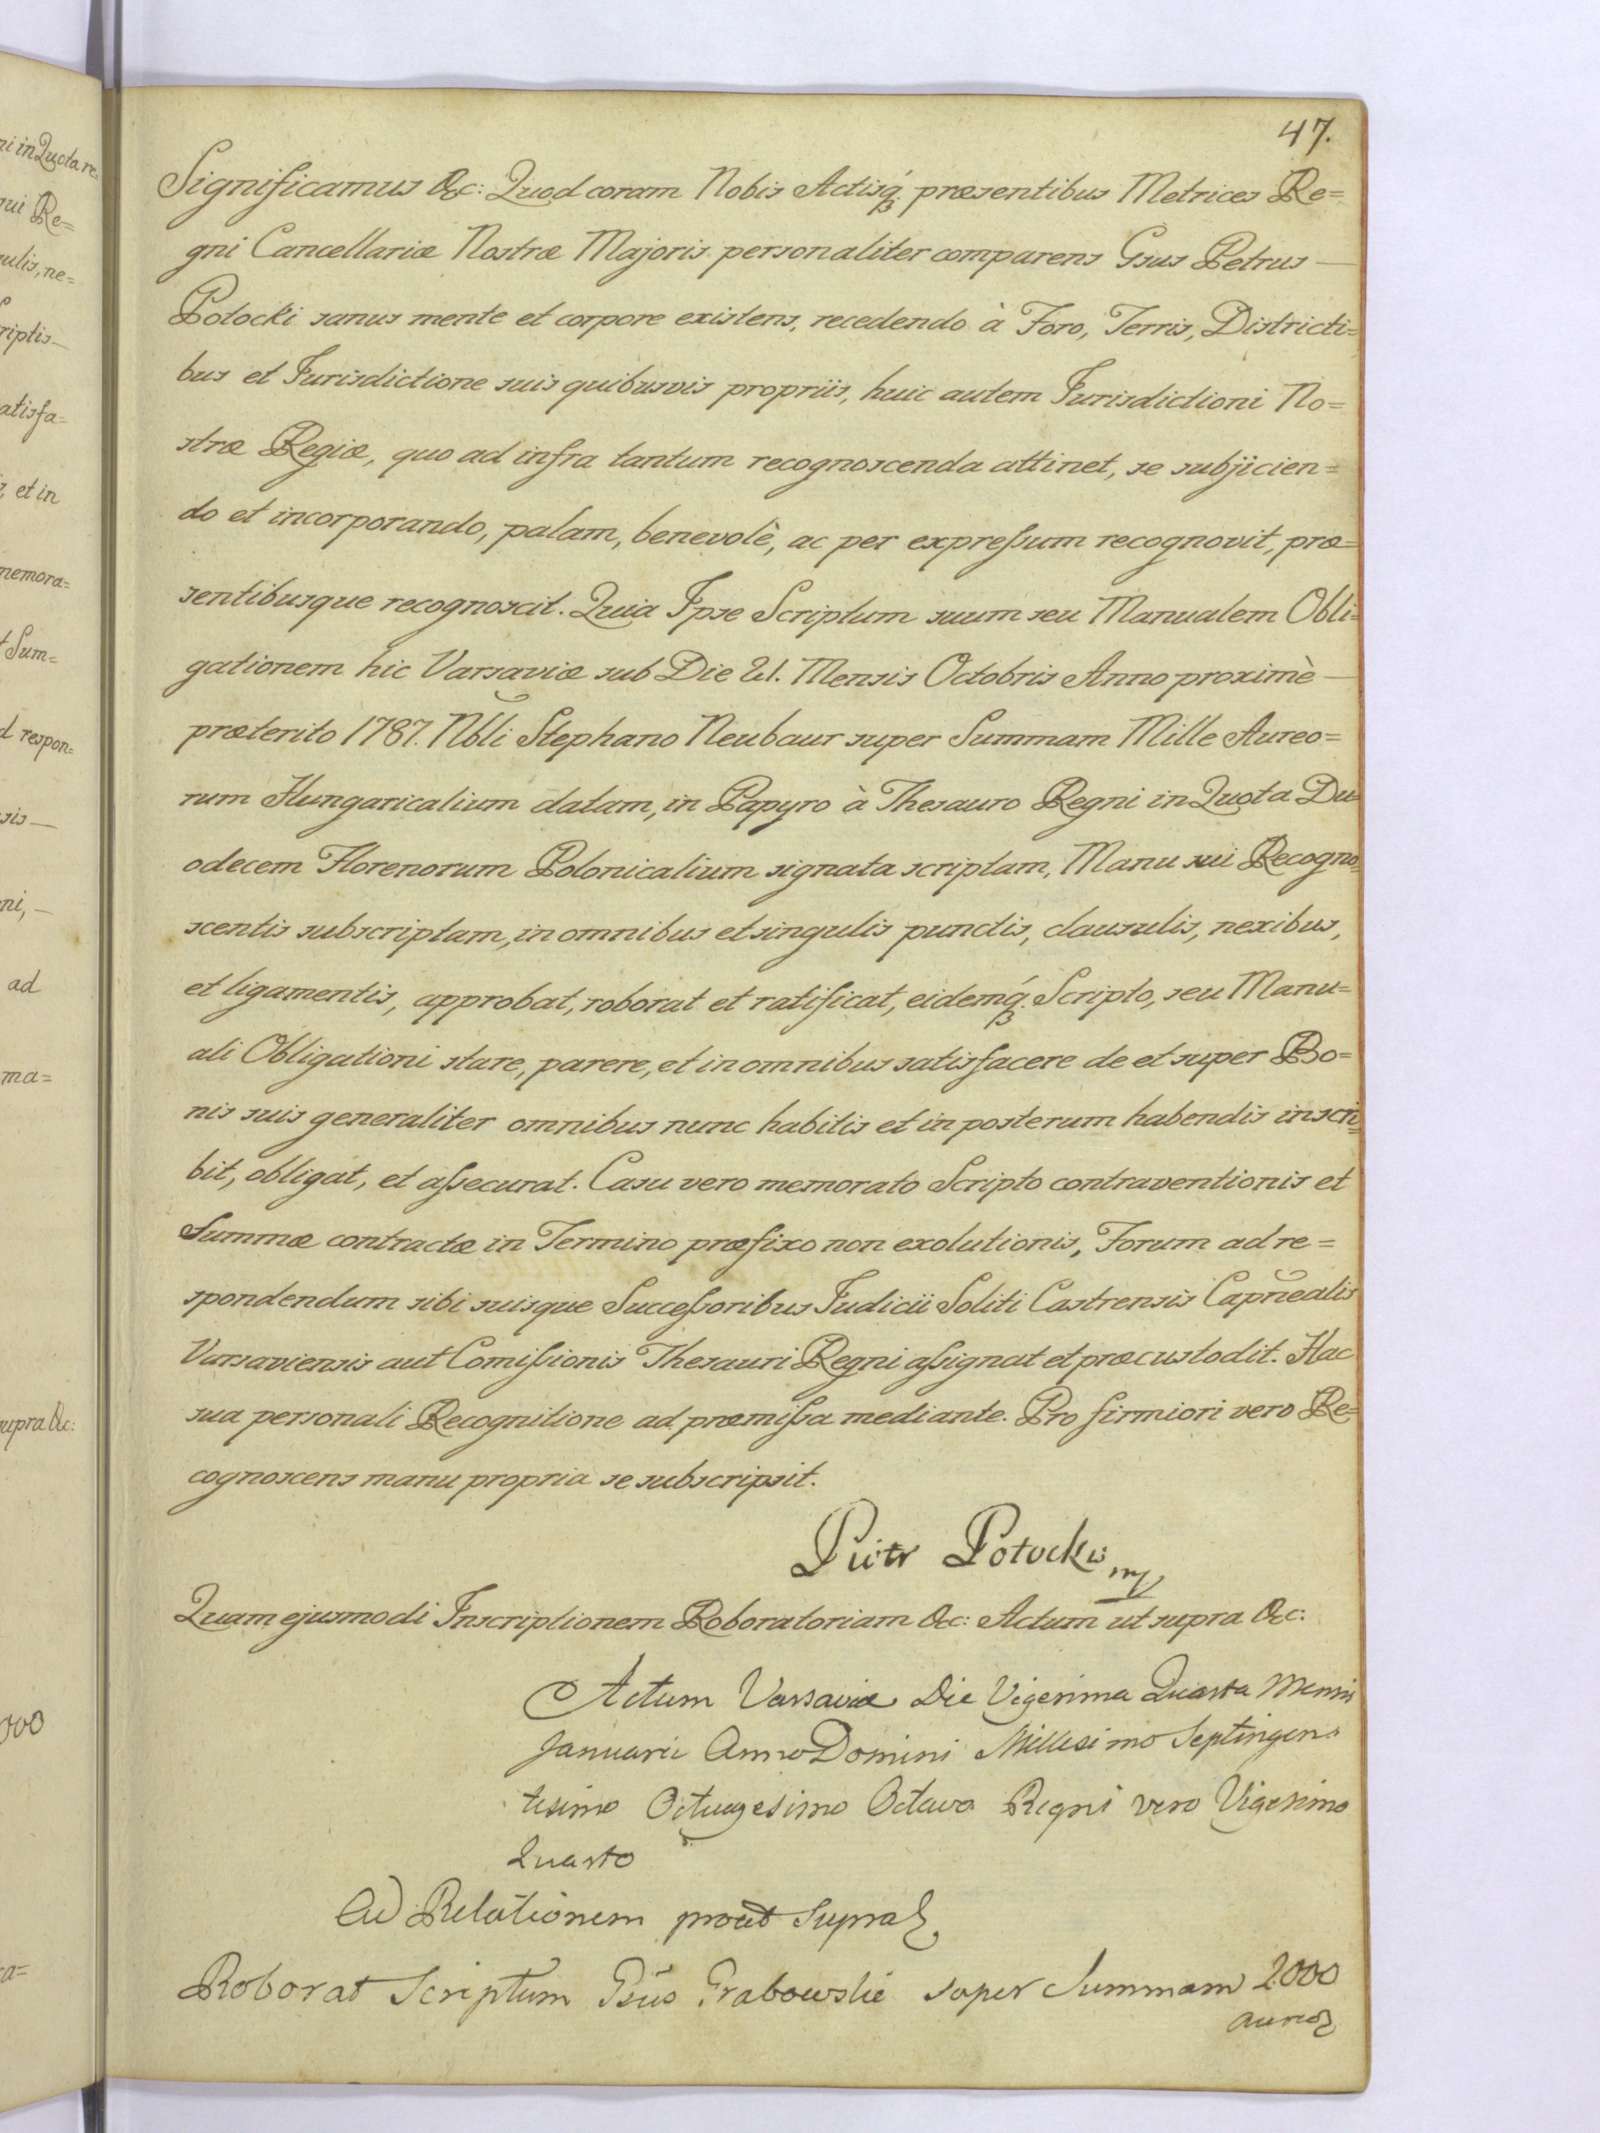 47.
Significamus &c: Quod coram Nobis Actisq́ præsentibus Metrices Re=
gni Cancellariæ Nostræ Majoris personaliter comparens Gsus Petrus —
Potocki sanus mente et corpore existens, recedendo à Foro, Terris, Districti=
bus et Jurisdictione suis quibusvis propriis, huic autem Jurisdictioni No=
stræ Regiæ, quo ad infra tantum recognoscenda attinet, se subjicien=
do et incorporando, palam, benevolè, ac per expressum recognovit, præ=
sentibusque recognoscit. Quia Ipse Scriptum suum seu Manualem Obli=
gationem hic Varsaviæ sub Die 21. Mensis Octobris Anno proximè —
præterito 1787. Nbli Stephano Neubaur super Summam Mille Aureo=
rum Hungaricalium datam, in Papyro à Thesauro Regni in Quota Du=
odecem Florenorum Polonicalium signata scriptam, Manu sui Recogno=
scentis subscriptam, in omnibus et singulis punctis, clausulis, nexibus,
et ligamentis, approbat, roborat et ratificat, eidemq́ Scripto, seu Manu=
ali Obligationi stare, parere, et in omnibus satisfacere de et super Bo=
nis suis generaliter omnibus nunc habitis et in posterum habendis inscri=
bit, obligat, et assecurat. Casu vero memorato Scripto contraventionis et
Summæ contractæ in Termino præfixo non exolutionis, Forum ad re=
spondendum sibi suisque Successoribus Judicii Soliti Castrensis Capñealis
Varsaviensis aut Comissionis Thesauri Regni assignat et præcustodit. Hac
sua personali Recognitione ad præmissa mediante. Pro firmiori vero Re=
cognoscens manu propria se subscripsit.
Piotr Potocki mp
Quam ejusmodi Inscriptionem Roboratoriam &c: Actum ut supra &c:
Actum Varsaviæ Die Vigesima Quarta Mensis
Januarii Anno Domini Millesimo Septingen=
tesimo Octuagesimo Octavo Regni vero Vigesimo
Quarto
Ad Relationem prout Supra
Roborat Scriptum Gsus Grabowski super Summam 2000
aureor